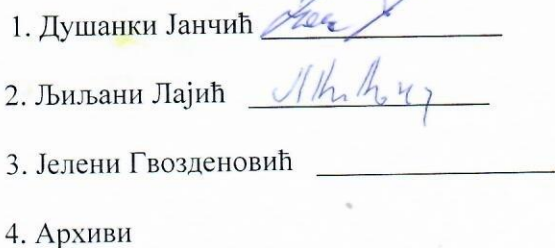 1. Душанки Јанчић
2. Љиљани Лајић
3. Јелени Гвозденовић
4. Архиви